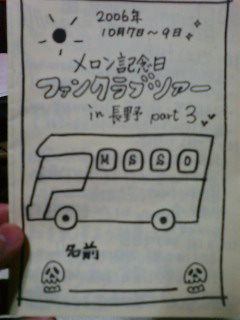 2006年
10月7日〜9日
メロン記念日
ファンクラブツアー
in 長野 part 3
M S S O
名前